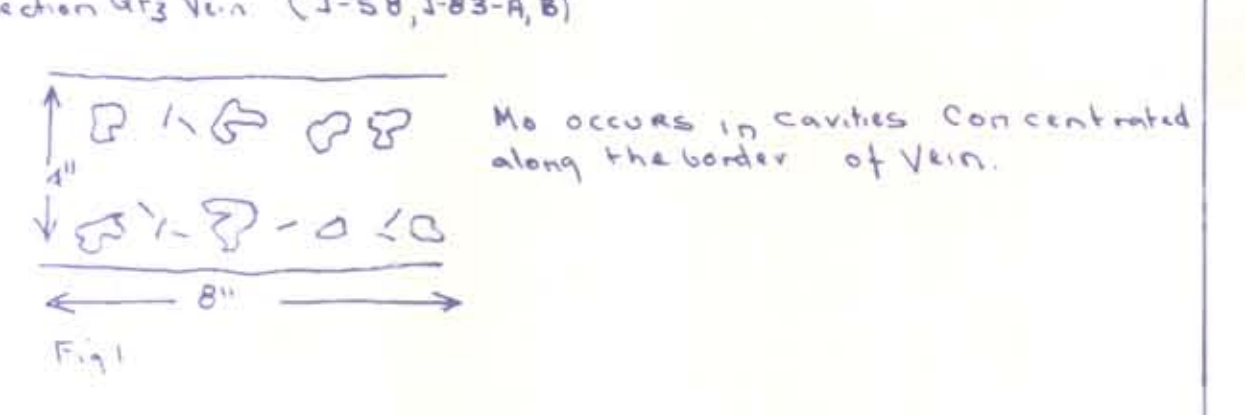 ection Qtz Vein. (J-58, J-83-A, B)
Mo occurs in cavities Concentrated
along the border of Vein.
4"
8"
Fig 1